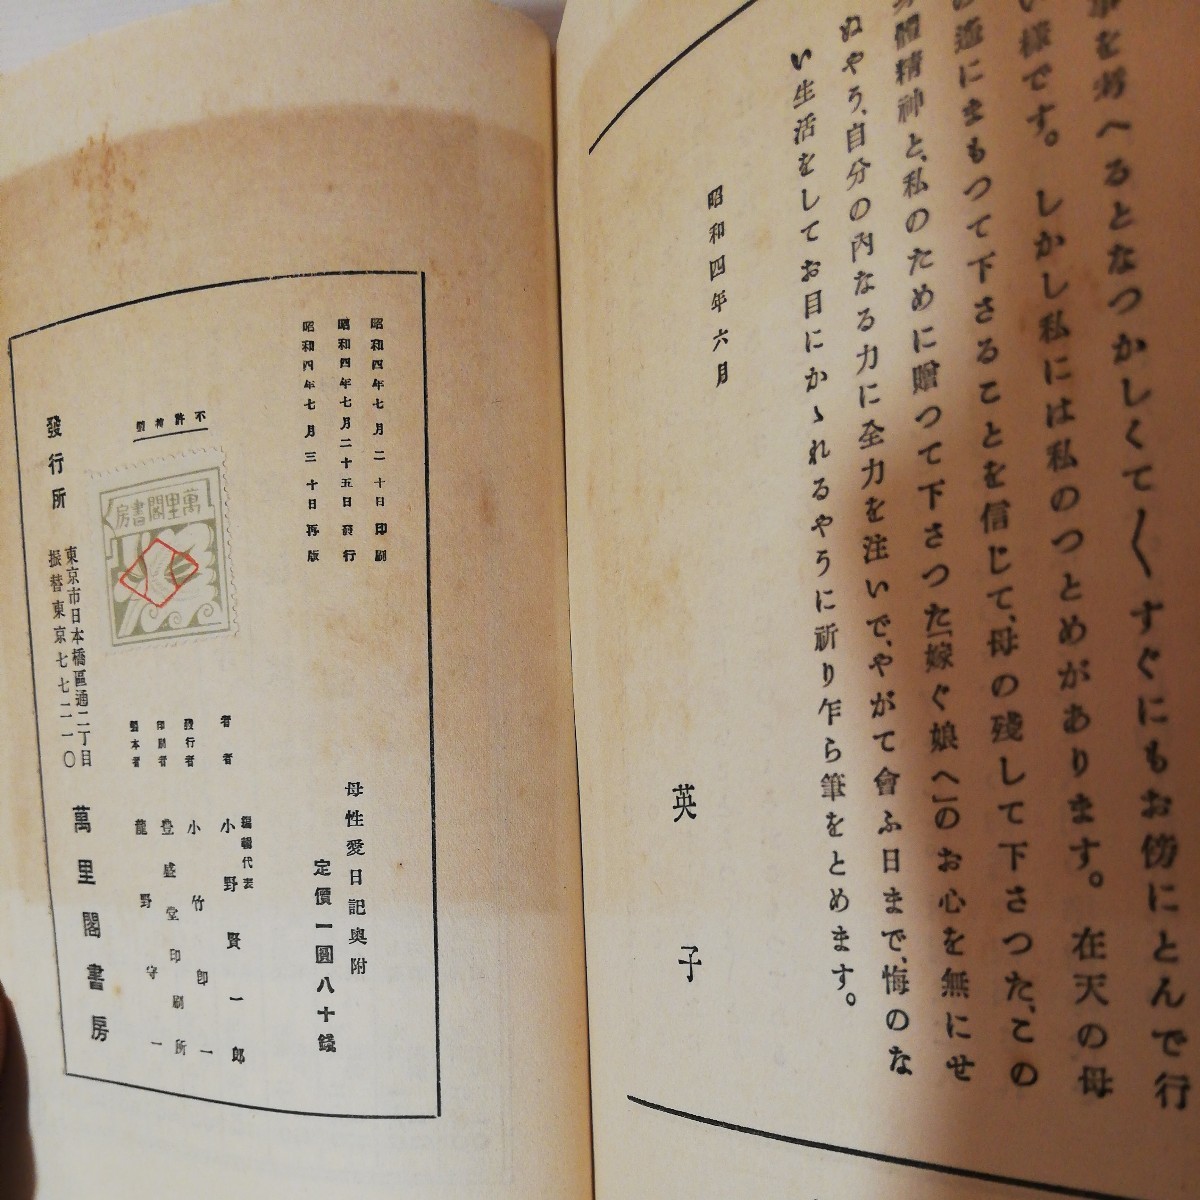 事を考へるとなつかしくて〱すぐにもお傍にとんで行
い様です。しかし私には私のつとめがあります。在天の母
遙にまもつて下さることを信じて、母の殘して下さつた、この
身體精神と、私のために贈つて下さつた「嫁ぐ娘へ」のお心を無にせ
ぬやう、自分の内なる力に全力を注いで、やがて會ふ日まで、悔のな
い生活をしてお目にかゝれるやうに祈り乍ら筆をとめます。
昭和四年六月
英子
昭和四年七月二十日印刷
昭和四年七月二十五日發行
昭和四年七月三十日再版
母性愛日記奥附
定價一圓八十錢
不許複製
萬里閣書房
著者 編輯代表 小野賢一郎
發行者 小竹即一
印刷者 豊盛堂印刷所
製本者 龍野守一
發行所
東京市日本橋區通二丁目
振替東京七七二一〇
萬里閣書房